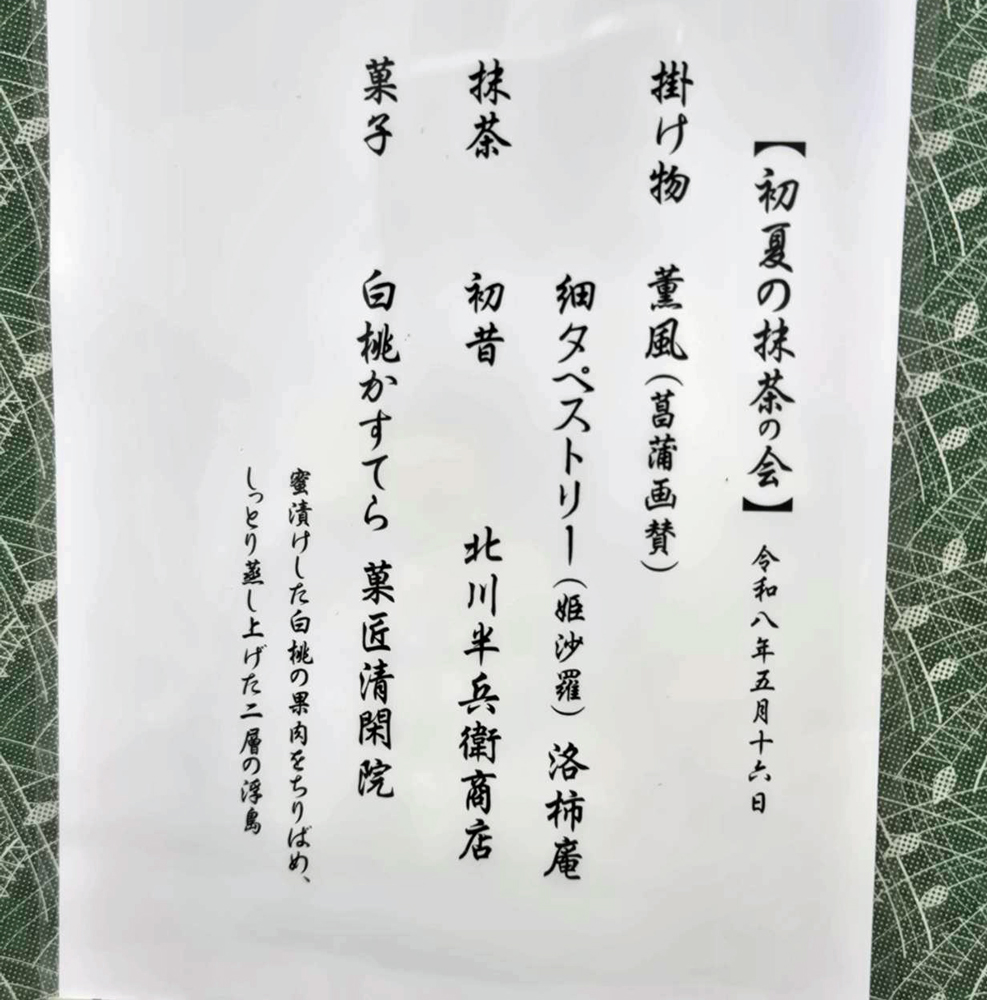 【初夏の抹茶の会】 令和八年五月十六日
掛け物 薫風(菖蒲画賛)
細タペストリー(姫沙羅) 洛柿庵
抹茶 初昔 北川半兵衛商店
菓子 白桃かすてら 菓匠清閑院
蜜漬けした白桃の果肉をちりばめ、
しっとり蒸し上げた二層の浮島